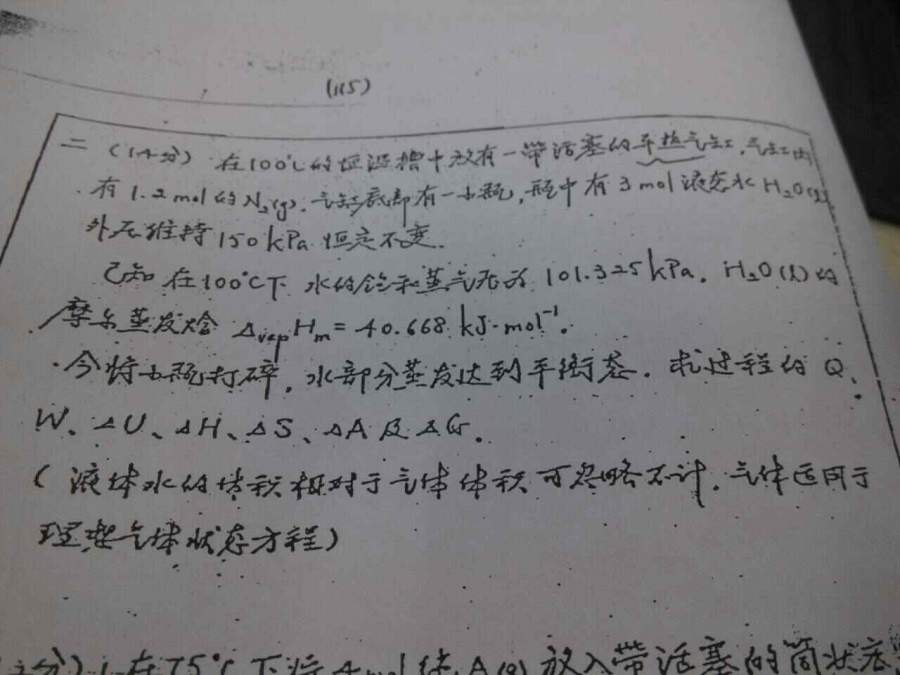 (115)
二 (14分) 在100℃的恒温槽中放有一带活塞的导热气缸,气缸内
有1.2mol的N₂(g),气缸底部有一小瓶,瓶中有3mol液态水H₂O(l)
外压维持150kPa恒定不变.
已知在100℃下水的饱和蒸气压为101.325kPa, H₂O(l)的
摩尔蒸发焓 ΔvapHm=40.668 kJ·mol⁻¹.
今将小瓶打碎,水部分蒸发达到平衡态.求过程的Q、
W、ΔU、ΔH、ΔS、ΔA及ΔG.
(液体水的体积相对于气体体积可忽略不计,气体适用于
理想气体状态方程)
分) 1.在75℃下将4mol纯A(g)放入带活塞的筒状